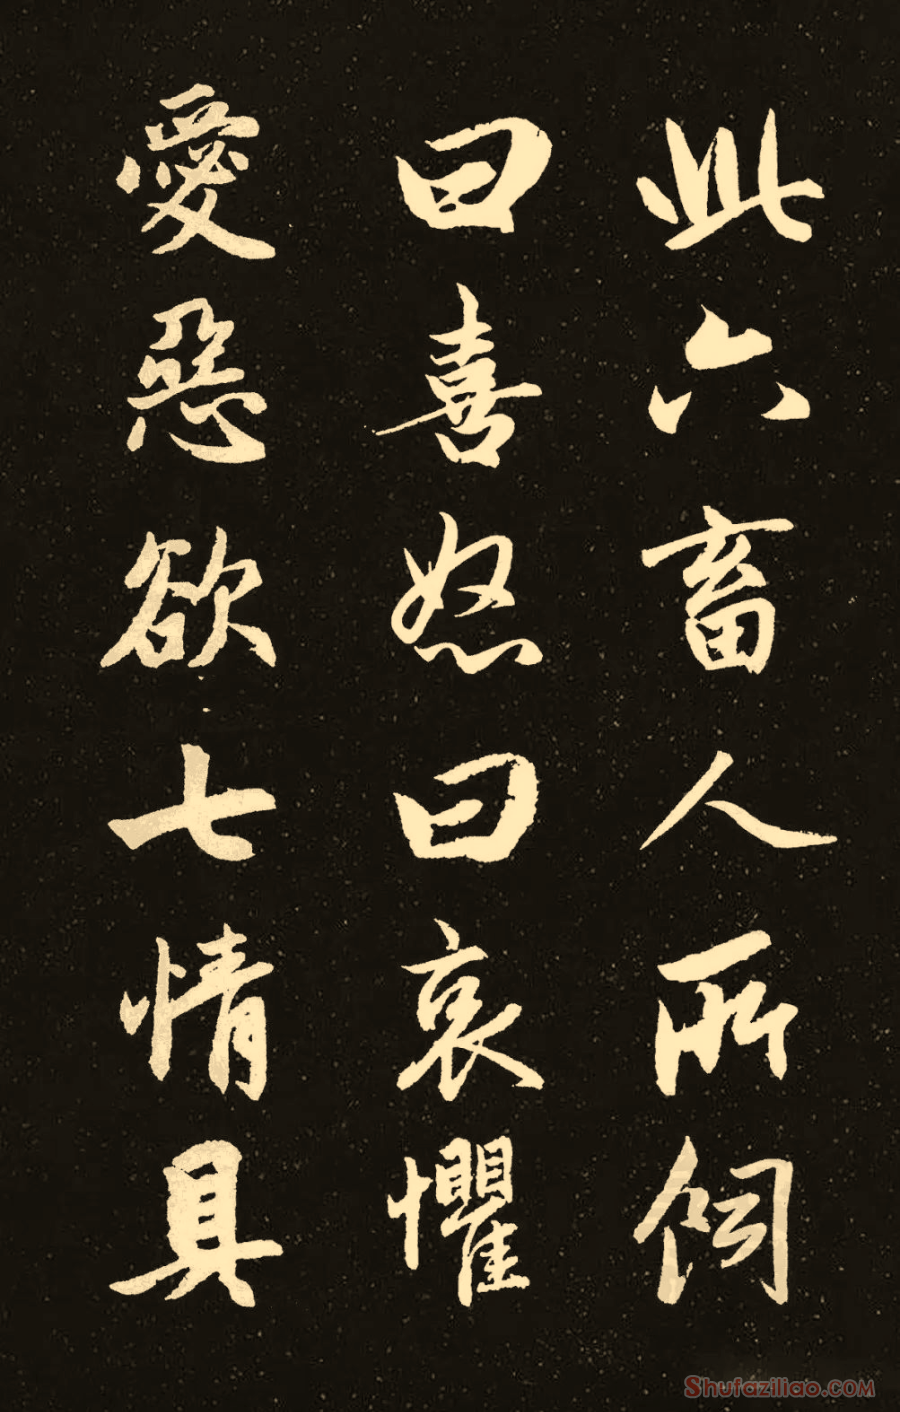 此六畜人所飼
曰喜怒曰哀懼
愛惡欲七情具
Shufaziliao.com